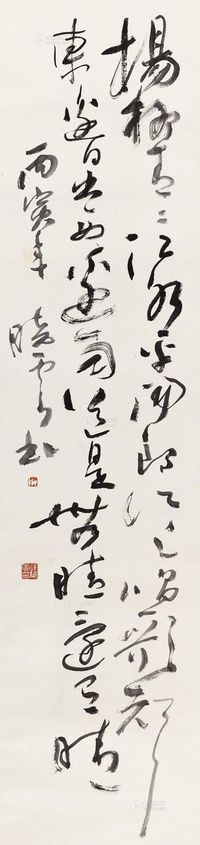 楊柳青〻江水平聞郎江上唱歌聲
東邊日出西邊雨道是無晴還有晴
丙寅年 曉雲书